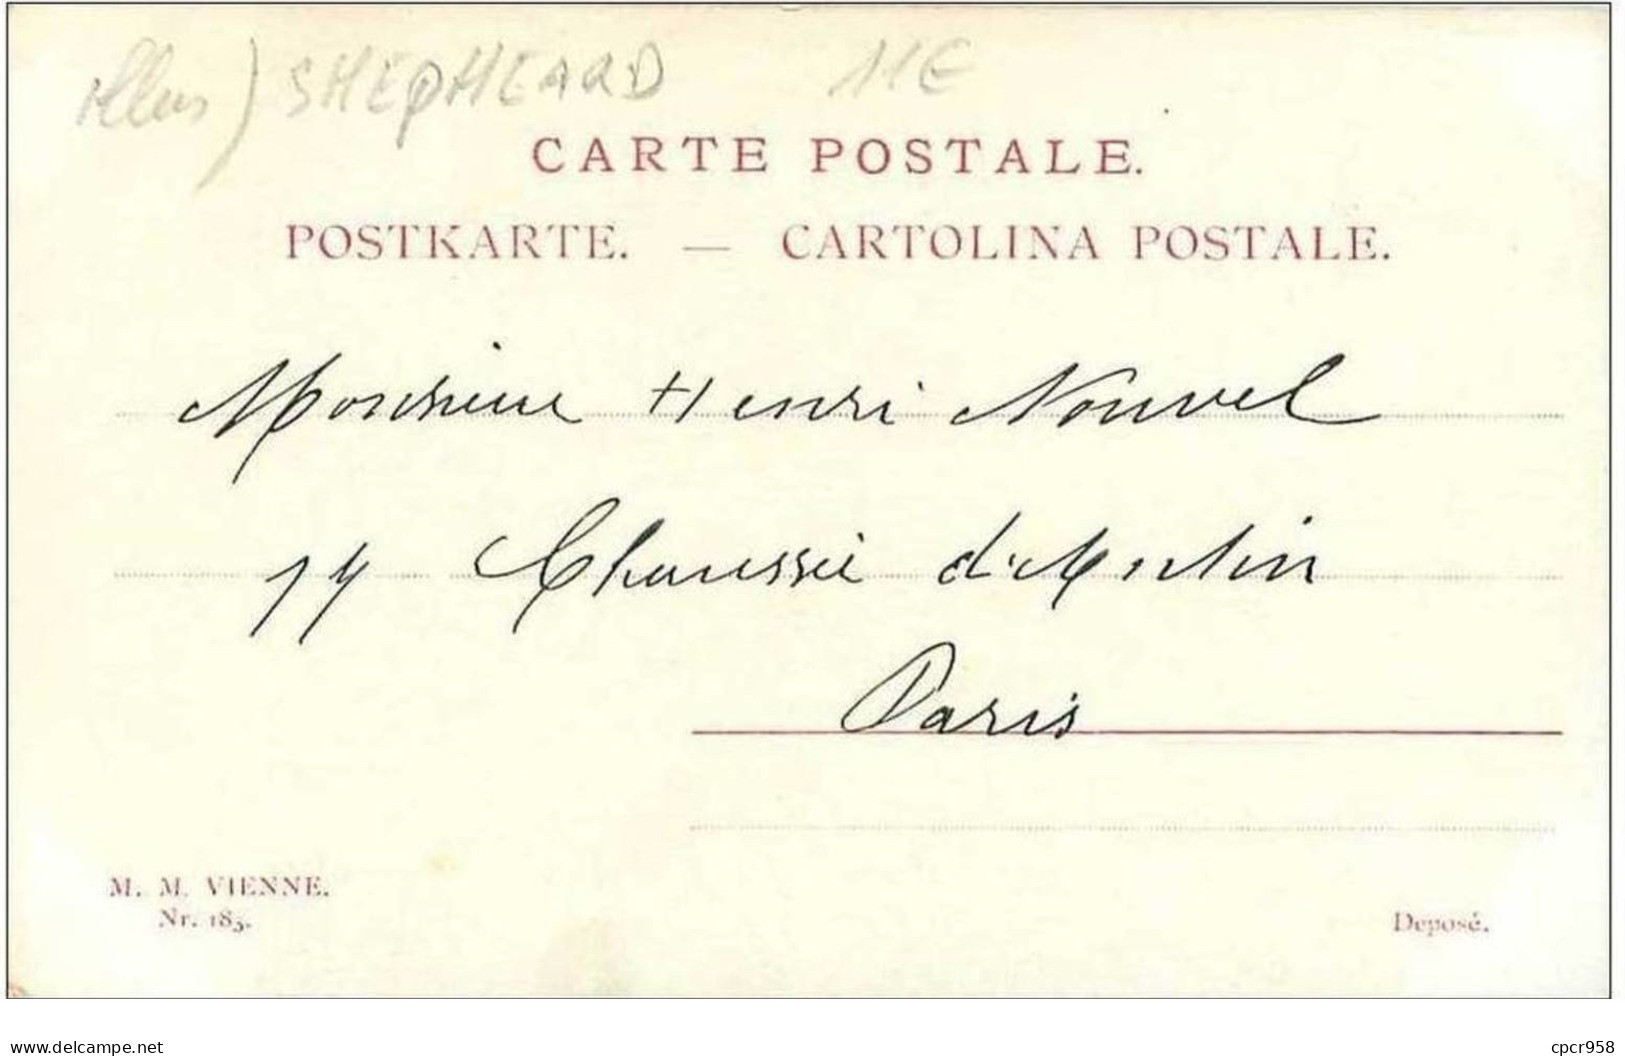 illus) SHEPHEARD 11E
CARTE POSTALE.
POSTKARTE. — CARTOLINA POSTALE.
Monsieur Henri Nouvel
Chaussée d'Antin
Paris
M. M. VIENNE.
Nr. 185.
Deposé.
www.delcampe.net cpcr958